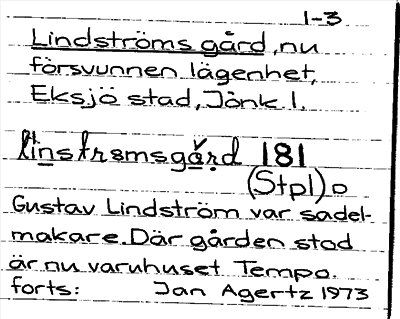 1-3
Lindströms gård, nu
försvunnen lägenhet,
Eksjö stad, Jönk. l.
lìnstrəmsgård 181
(Stpl) o
Gustav Lindström var sadel-
makare. Där gården stod
är nu varuhuset Tempo.
forts: Jan Agertz 1973